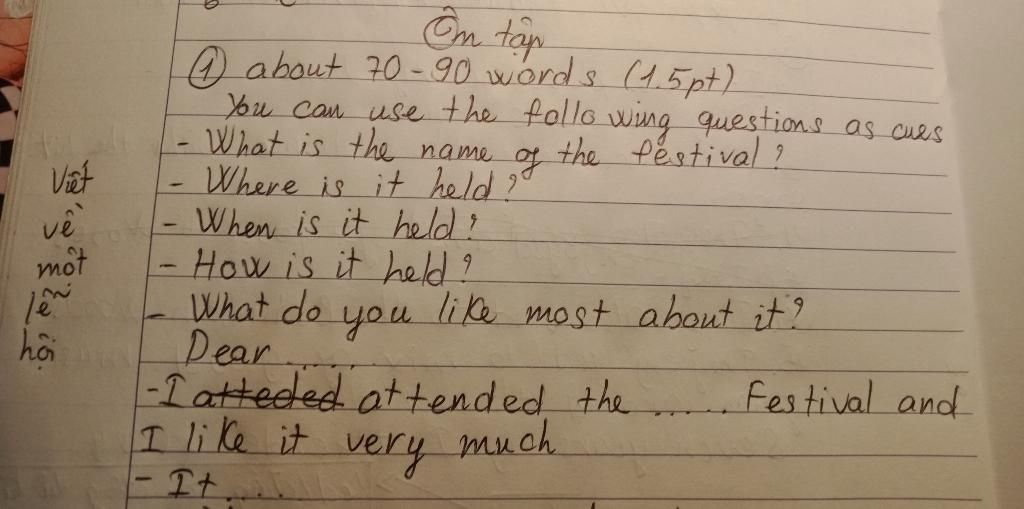 Ôn tập
① about 70-90 words (1.5pt)
You can use the following questions as cues
- What is the name of the festival?
- Where is it held?
- When is it held?
- How is it held?
- What do you like most about it?
Dear ......
- I atteded attended the ..... Festival and
I like it very much
- It ....
Viết
về
một
lễ
hội